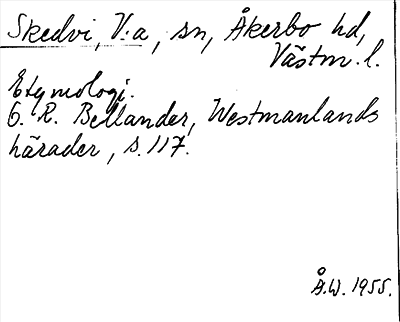 Skedvi, V:a, sn, Åkerbo hd,
Västm. l.
Etymologi.
G. R. Bellander, Westmanlands
härader, s. 117.
Å.W. 1955.